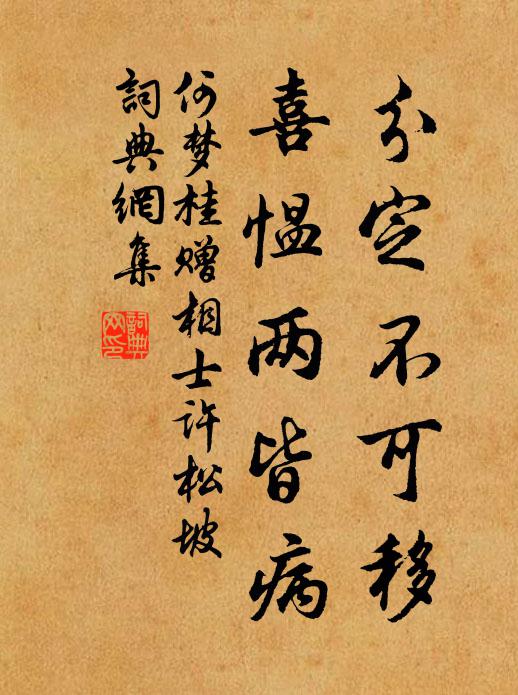 分定不可移
喜愠两皆病
何梦桂赠相士许松坡
词典網集
詞典網印